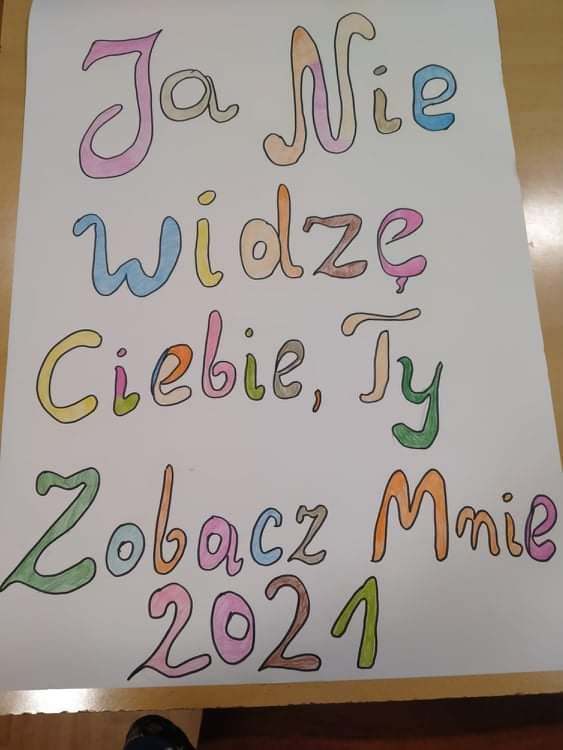 Ja Nie
widzę
Ciebie, Ty
Zobacz Mnie
2021